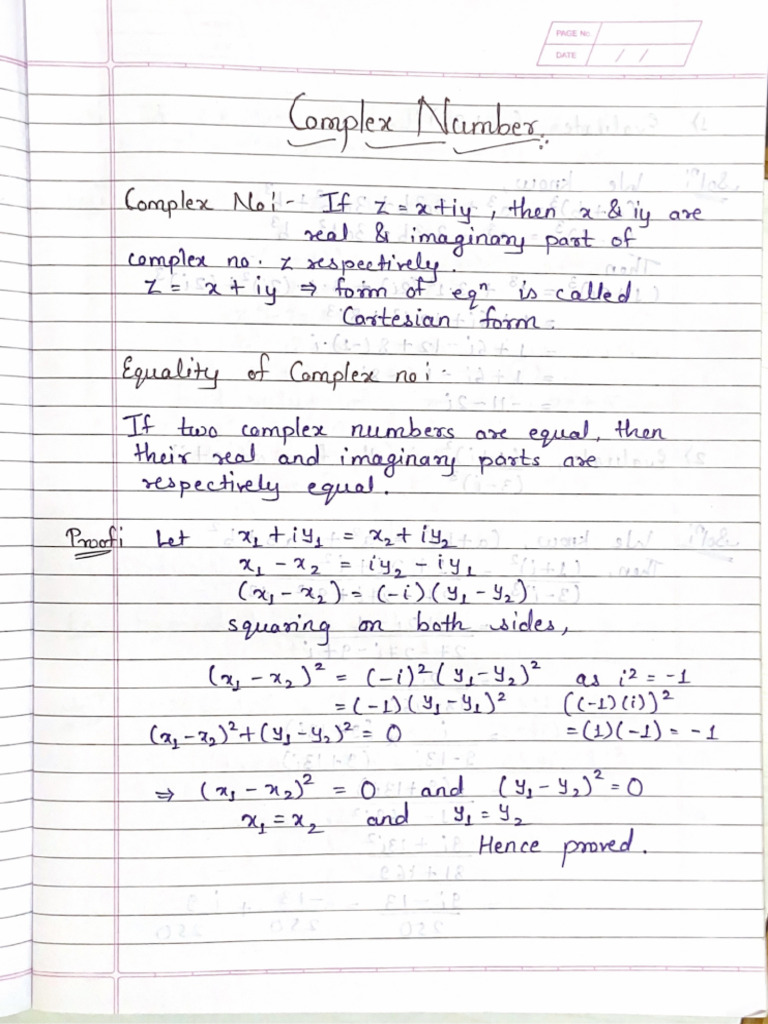 PAGE No
DATE / /
Complex Number
Complex No:- If z = x+iy, then x & iy are
real & imaginary part of
complex no. z respectively.
z = x + iy ⇒ form of eqⁿ is called
Cartesian form.
Equality of Complex no:-
If two complex numbers are equal, then
their real and imaginary parts are
respectively equal.
Proof: Let x₁ + iy₁ = x₂ + iy₂
x₁ - x₂ = iy₂ - iy₁
(x₁ - x₂) = (-i)(y₁ - y₂)
squaring on both sides,
(x₁ - x₂)² = (-i)² (y₁ - y₂)² as i² = -1
= (-1)(y₁ - y₁)² ((-1)(i))²
(x₁-x₂)² + (y₁ - y₂)² = 0 = (1)(-1) = -1
⇒ (x₁ - x₂)² = 0 and (y₁ - y₂)² = 0
x₁ = x₂ and y₁ = y₂
Hence proved.